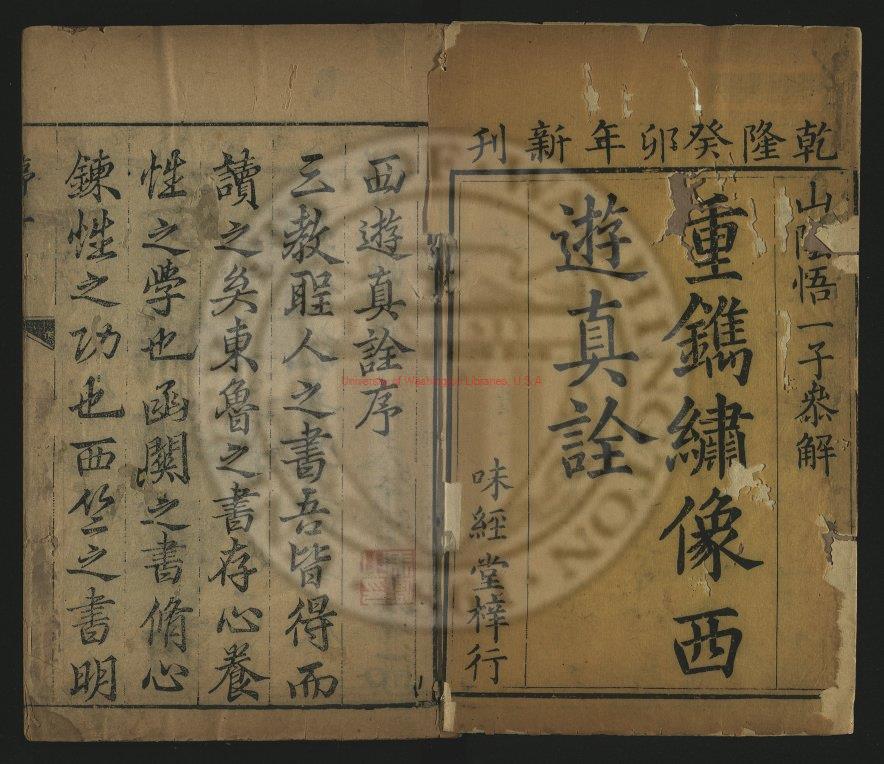 乾隆癸卯年新刊
山陰悟一子叅解
重鐫繡像西
遊真詮
味經堂梓行
西遊真詮序
三教聖人之書吾皆得而
讀之矣東魯之書存心養
性之學也函關之書脩心
鍊性之功也西竺之書明
University of Washington Libraries, U.S.A